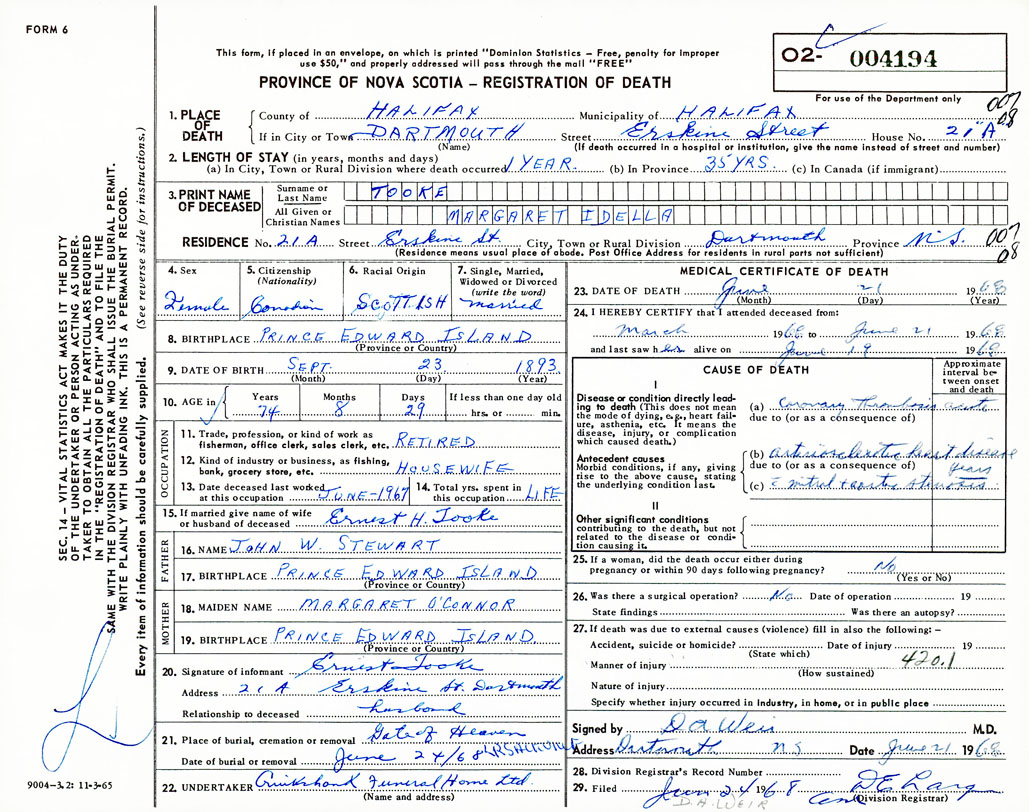 FORM 6
This form, if placed in an envelope, on which is printed "Dominion Statistics – Free, penalty for improper
use $50," and properly addressed will pass through the mail "FREE"
O2- 004194
PROVINCE OF NOVA SCOTIA – REGISTRATION OF DEATH
For use of the Department only
1. PLACE OF DEATH
County of HALIFAX Municipality of HALIFAX 007 08
If in City or Town DARTMOUTH Street Erskine Street House No. 21 "A"
(Name) (If death occurred in a hospital or institution, give the name instead of street and number)
2. LENGTH OF STAY (in years, months and days)
(a) In City, Town or Rural Division where death occurred 1 YEAR. (b) In Province 35 YRS. (c) In Canada (if immigrant)
3. PRINT NAME OF DECEASED
Surname or Last Name TOOKE
All Given or Christian Names MARGARET IDELLA
RESIDENCE No. 21 A Street Erskine St. City, Town or Rural Division Dartmouth Province N.S. 007 08
(Residence means usual place of abode. Post Office Address for residents in rural parts not sufficient)
4. Sex Female
5. Citizenship (Nationality) Canadian
6. Racial Origin SCOTTISH
7. Single, Married, Widowed or Divorced (write the word) married
8. BIRTHPLACE PRINCE EDWARD ISLAND
(Province or Country)
9. DATE OF BIRTH SEPT. 23 1893
(Month) (Day) (Year)
10. AGE in Years Months Days If less than one day old
74 8 29 hrs. or min.
OCCUPATION
11. Trade, profession, or kind of work as
fisherman, office clerk, sales clerk, etc. RETIRED
12. Kind of industry or business, as fishing,
bank, grocery store, etc. HOUSEWIFE
13. Date deceased last worked at this occupation JUNE-1967
14. Total yrs. spent in this occupation LIFE
15. If married give name of wife
or husband of deceased Ernest H. Tooke
FATHER
16. NAME JOHN W. STEWART
17. BIRTHPLACE PRINCE EDWARD ISLAND
(Province or Country)
MOTHER
18. MAIDEN NAME MARGARET O'CONNOR
19. BIRTHPLACE PRINCE EDWARD ISLAND
(Province or Country)
20. Signature of informant Ernest Tooke
Address 21 A Erskine St. Dartmouth
Relationship to deceased husband
21. Place of burial, cremation or removal Gate of Heaven
Date of burial or removal June 24/68
22. UNDERTAKER Cruikshank Funeral Home Ltd.
(Name and address)
MEDICAL CERTIFICATE OF DEATH
23. DATE OF DEATH June 21 1968
(Month) (Day) (Year)
24. I HEREBY CERTIFY that I attended deceased from:
March 1968 to June 21 1968
and last saw her alive on June 19 1968
CAUSE OF DEATH
Approximate interval between onset and death
I
Disease or condition directly leading to death (This does not mean the mode of dying, e.g., heart failure, asthenia, etc. It means the disease, injury, or complication which caused death.)
(a) Coronary Thrombosis acute
due to (or as a consequence of)
Antecedent causes
Morbid conditions, if any, giving rise to the above cause, stating the underlying condition last.
(b) arteriosclerotic heart disease years
due to (or as a consequence of)
(c) mitral stenosis
II
Other significant conditions
contributing to the death, but not related to the disease or condition causing it.
25. If a woman, did the death occur either during
pregnancy or within 90 days following pregnancy? No
(Yes or No)
26. Was there a surgical operation? No Date of operation 19
State findings Was there an autopsy?
27. If death was due to external causes (violence) fill in also the following: –
Accident, suicide or homicide? Date of injury 19
(State which)
Manner of injury 420.1
(How sustained)
Nature of injury
Specify whether injury occurred in Industry, in home, or in public place
Signed by D A Weir M.D.
Address Dartmouth N S Date June 21 1968
28. Division Registrar's Record Number
29. Filed June 24 1968
D.A. WEIR (Division Registrar)
SEC. 14 – VITAL STATISTICS ACT MAKES IT THE DUTY
OF THE UNDERTAKER OR PERSON ACTING AS UNDERTAKER TO OBTAIN ALL THE PARTICULARS REQUIRED
IN THE "REGISTRATION OF DEATH" AND TO FILE THE
SAME WITH THE DIVISION REGISTRAR WHO SHALL ISSUE THE BURIAL PERMIT.
WRITE PLAINLY WITH UNFADING INK. THIS IS A PERMANENT RECORD.
Every item of information should be carefully supplied. (See reverse side for instructions.)
9004-3.2: 11-3-65